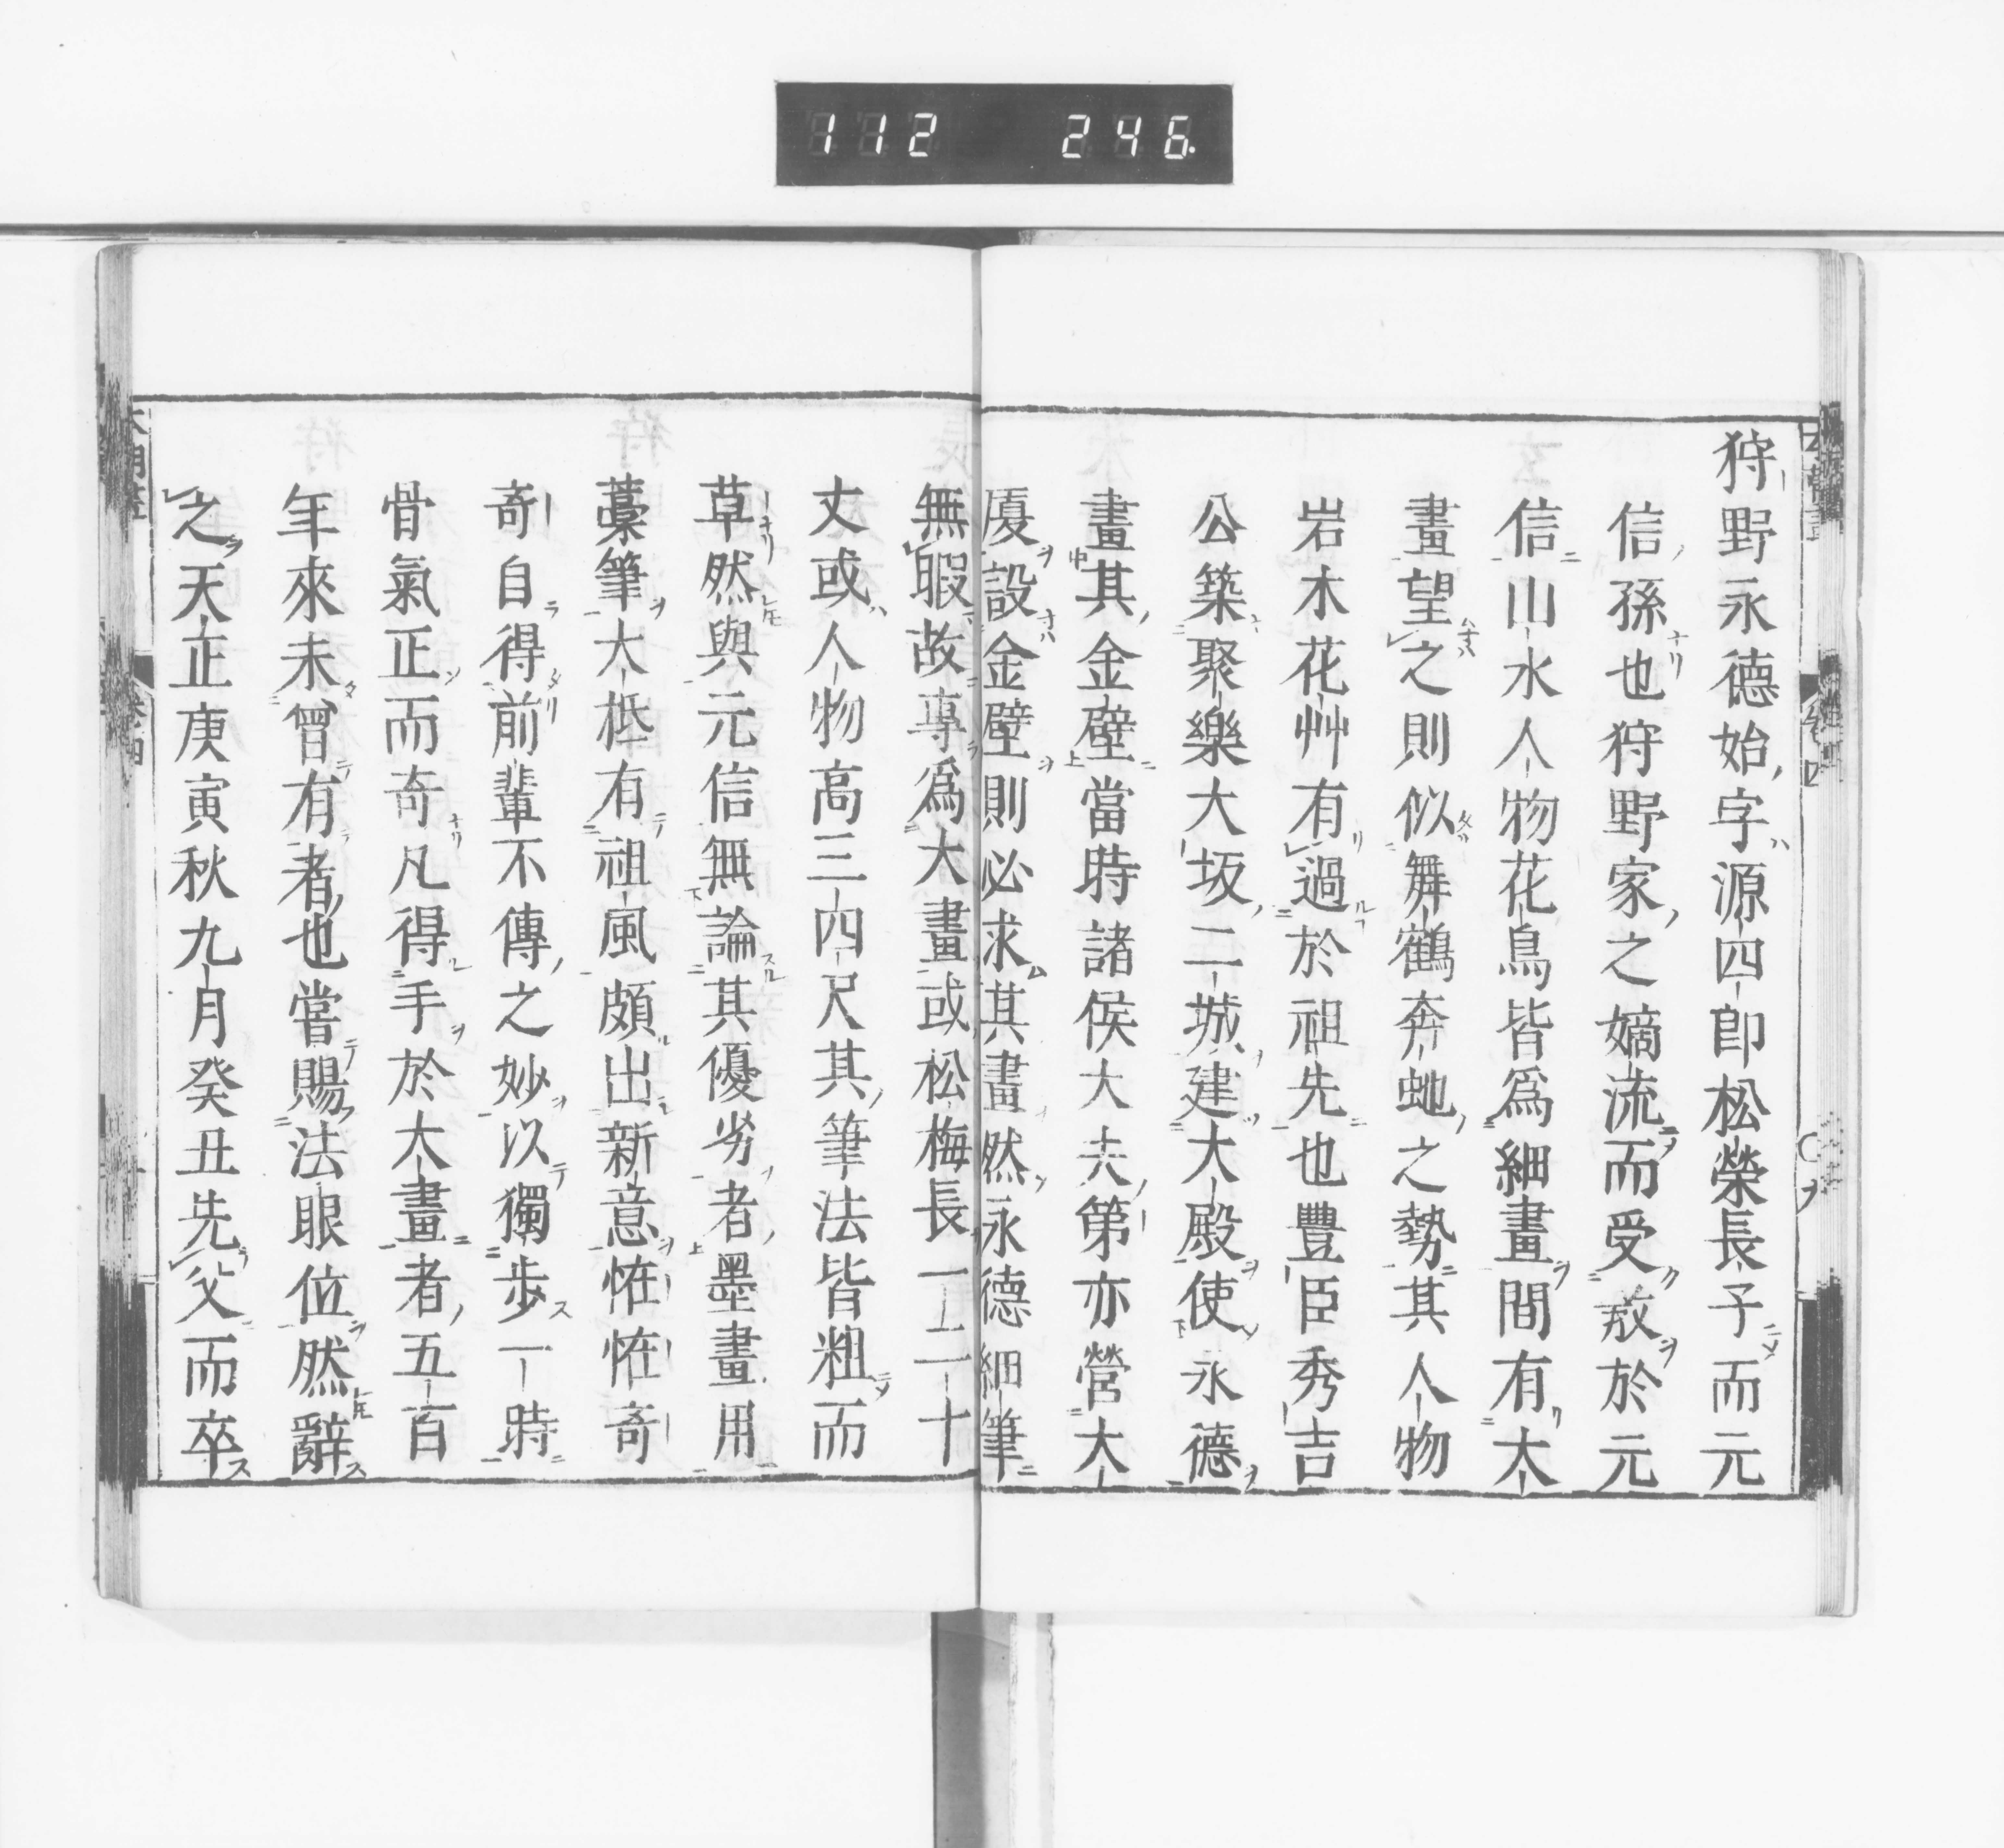 112 246.
狩野永德始字源四郎松榮長子而元
信孫也狩野家之嫡流而受敎於元
信山水人物花鳥皆爲細畫間有大
畫望之則似舞鶴奔虵之勢其人物
岩木花艸有過於祖先也豐臣秀吉
公築聚樂大坂二城建大殿使永德
畫其金壁當時諸侯大夫第亦營大
厦設金壁則必求其畫然永德細筆
無暇故專爲大畫或松梅長一二十
丈或人物高三四尺其筆法皆粗而
草然與元信無論其優劣者墨畫用
藁筆大柢有祖風頗出新意恠恠奇
奇自得前輩不傳之妙以獨步一時
骨氣正而奇凡得手於大畫者五百
年來未曾有者也嘗賜法眼位然辭
之天正庚寅秋九月癸丑先父而卒